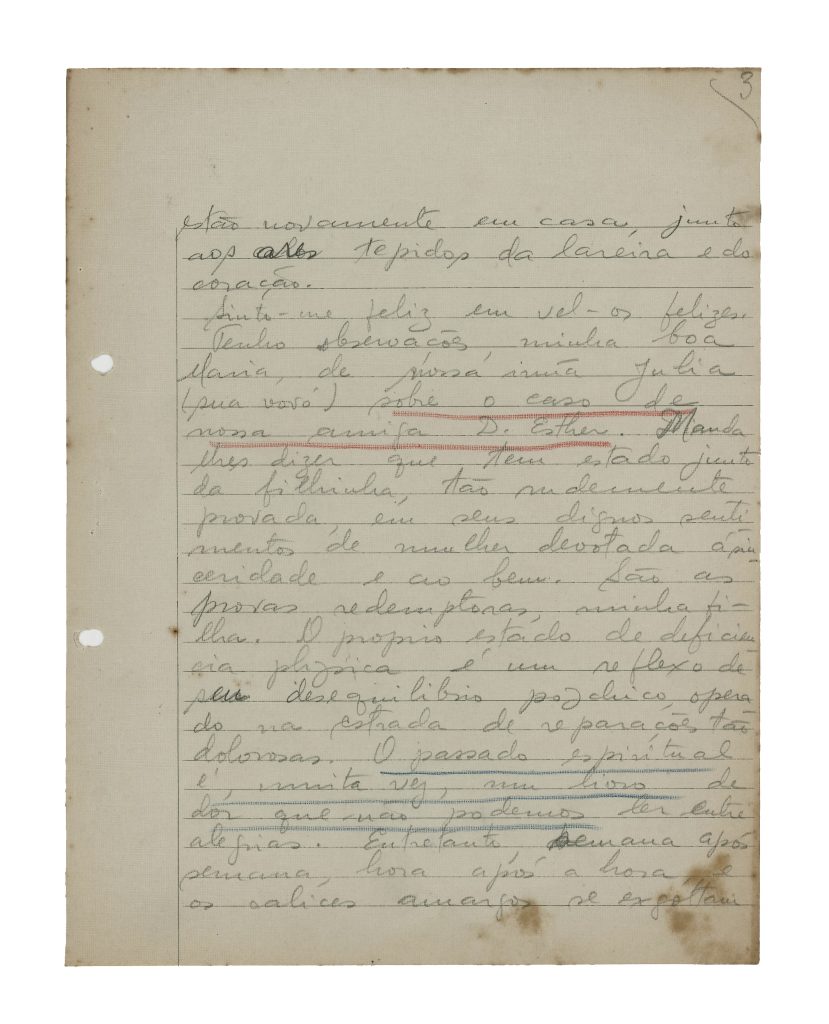 3
estão novamente em casa, junto
aos tepidos da lareira e do
coração.
Sinto-me feliz em vel-os felizes.
Tenho observações, minha boa
Maria, de nossa irmã Julia
(sua vovó) sobre o caso de
nossa amiga D. Esther. Manda
lhes dizer que tem estado junto
da filhinha, tão rudemente
provada, em seus dignos senti
mentos de mulher devotada á sin
ceridade e ao bem. São as
provas redemptoras, minha fi-
lha. O proprio estado de deficien
cia physica é um reflexo de
seu desequilibrio psychico, opera
do na estrada de reparações tão
dolorosas. O passado espiritual
é, muita vez, um livro de
dor que não podemos ler entre
alegrias. Entretanto semana após
semana, hora após a hora, e
os calices amargos se exgottam